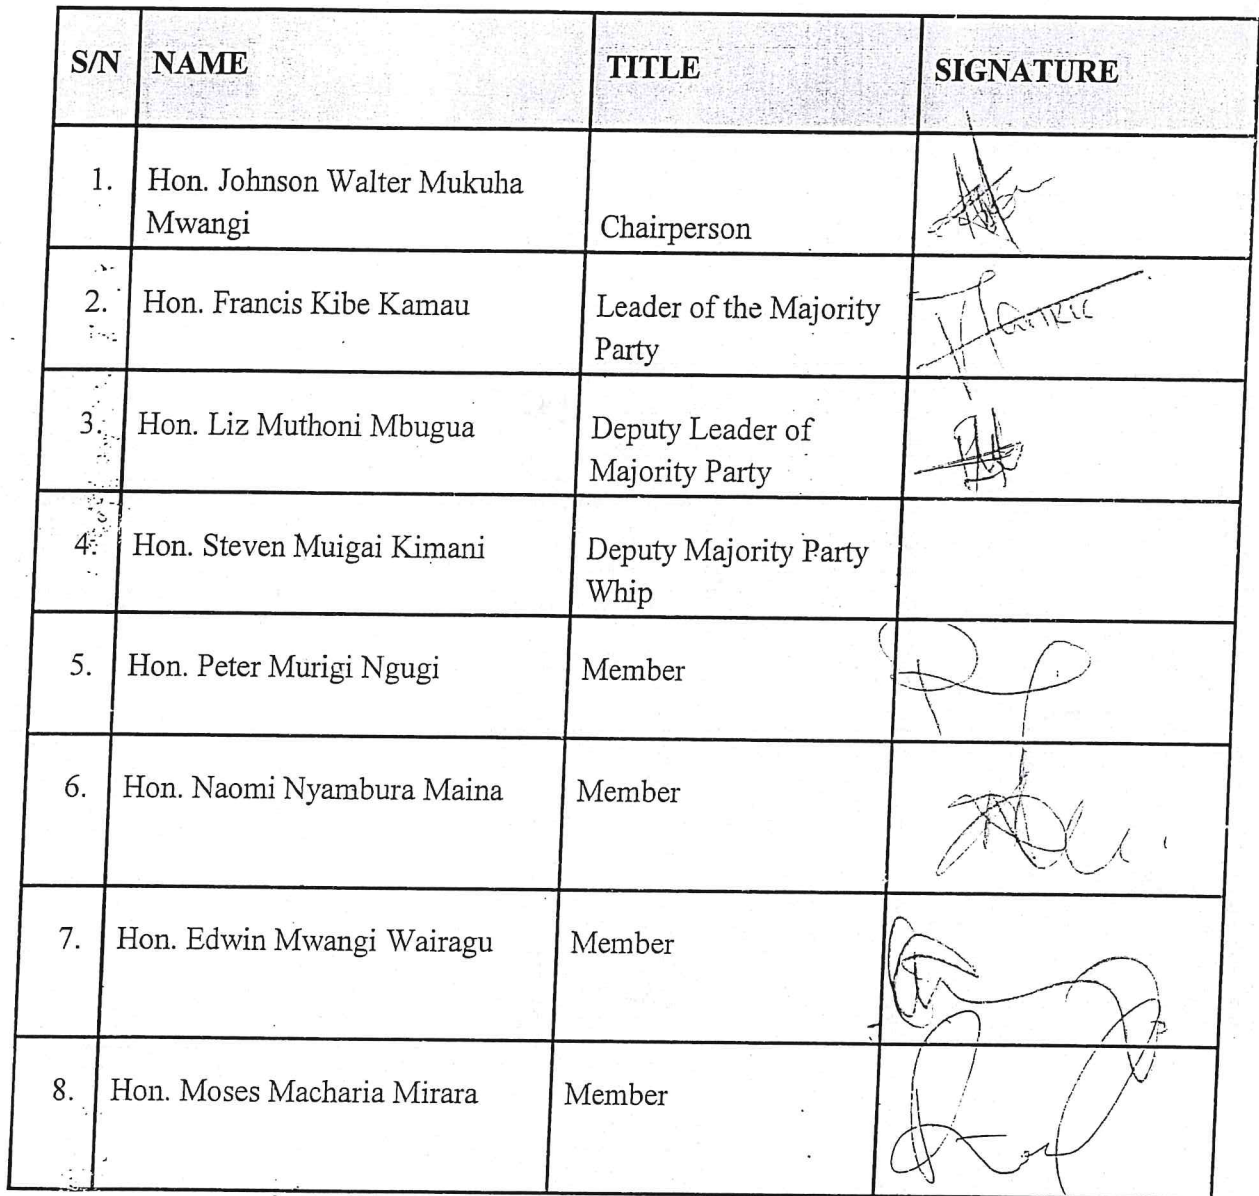 S/N NAME TITLE SIGNATURE
1. Hon. Johnson Walter Mukuha
Mwangi
Chairperson
2. Hon. Francis Kibe Kamau
Leader of the Majority
Party
3. Hon. Liz Muthoni Mbugua
Deputy Leader of
Majority Party
4. Hon. Steven Muigai Kimani
Deputy Majority Party
Whip
5. Hon. Peter Murigi Ngugi
Member
6. Hon. Naomi Nyambura Maina
Member
7. Hon. Edwin Mwangi Wairagu
Member
8. Hon. Moses Macharia Mirara
Member